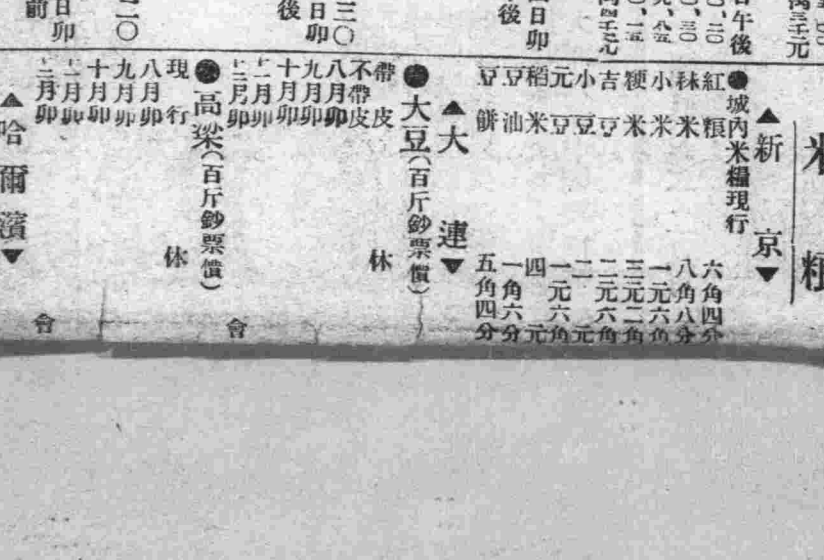 米糧
▲新京▼
●城內米糧現行
紅粮 六角四分
秣米 八角八分
小米 一元六角
粳米 三元二角
吉豆 二元六角
小豆 二元
元豆 一元六角
稻米 四元
豆油 一角六分
豆餅 五角四分
▲大連▼
●大豆(百斤鈔票價)
帶皮
不帶皮 休
八月卯
九月卯
十月卯
十一月卯
十二月卯 會
●高粱(百斤鈔票價)
現行 休
八月卯
九月卯
十月卯
十一月卯
十二月卯 會
▲哈爾濱▼